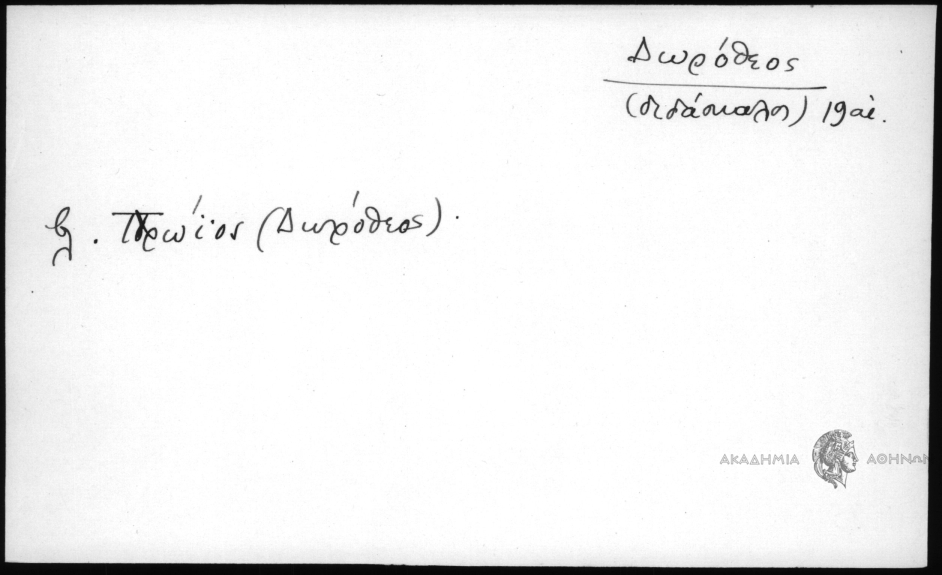 Δωρόθεος
(διδάσκαλος) 19 αἰ.
βλ. Πρώϊος (Δωρόθεος).
ΑΚΑΔΗΜΙΑ ΑΘΗΝΩΝ